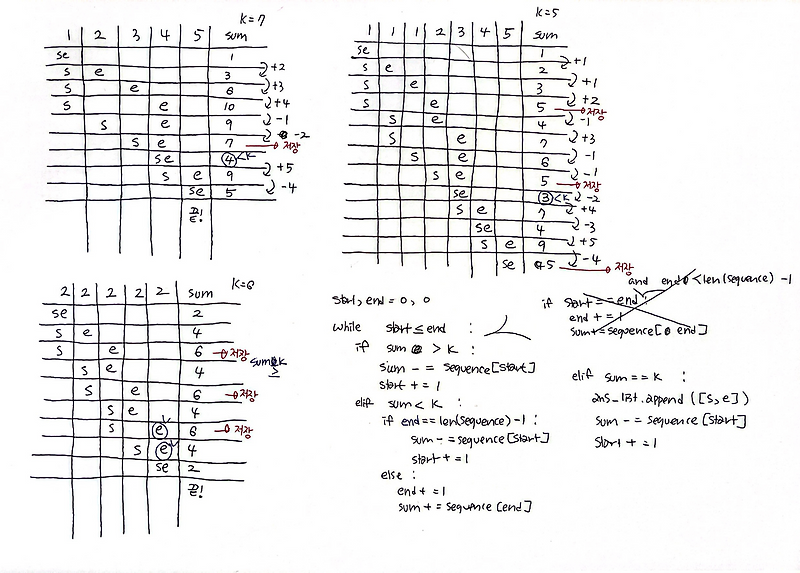 K=7
1 2 3 4 5 sum
se 1
s e 3 +2
s e 6 +3
s e 10 +4
s e 9 -1
s e 7 -2 저장
se 4 <K
s e 9 +5
se 5 -4
끝!
K=5
1 1 1 2 3 4 5 sum
se 1
s e 2 +1
s e 3 +1
s e 5 +2 저장
s e 4 -1
s e 7 +3
s e 6 -1
s e 5 -1 저장
se 3 <K -2
s e 7 +4
se 4 -3
s e 9 +5
se 5 -4 저장
K=6
2 2 2 2 2 sum
se 2
s e 4
s e 6 저장
s e 4 sum K ≥
s e 6 저장
s e 4
s e 6 저장
s e 4
se 2
끝!
start, end = 0, 0
while start ≤ end :
if sum > K :
sum -= sequence[start]
start += 1
elif sum < K :
if end == len(sequence) -1 :
sum -= sequence[start]
start += 1
else :
end += 1
sum += sequence[end]
and end < len(sequence) -1
if start == end :
end += 1
sum += sequence[end]
elif sum == K :
ans_list.append([s, e])
sum -= sequence[start]
start += 1